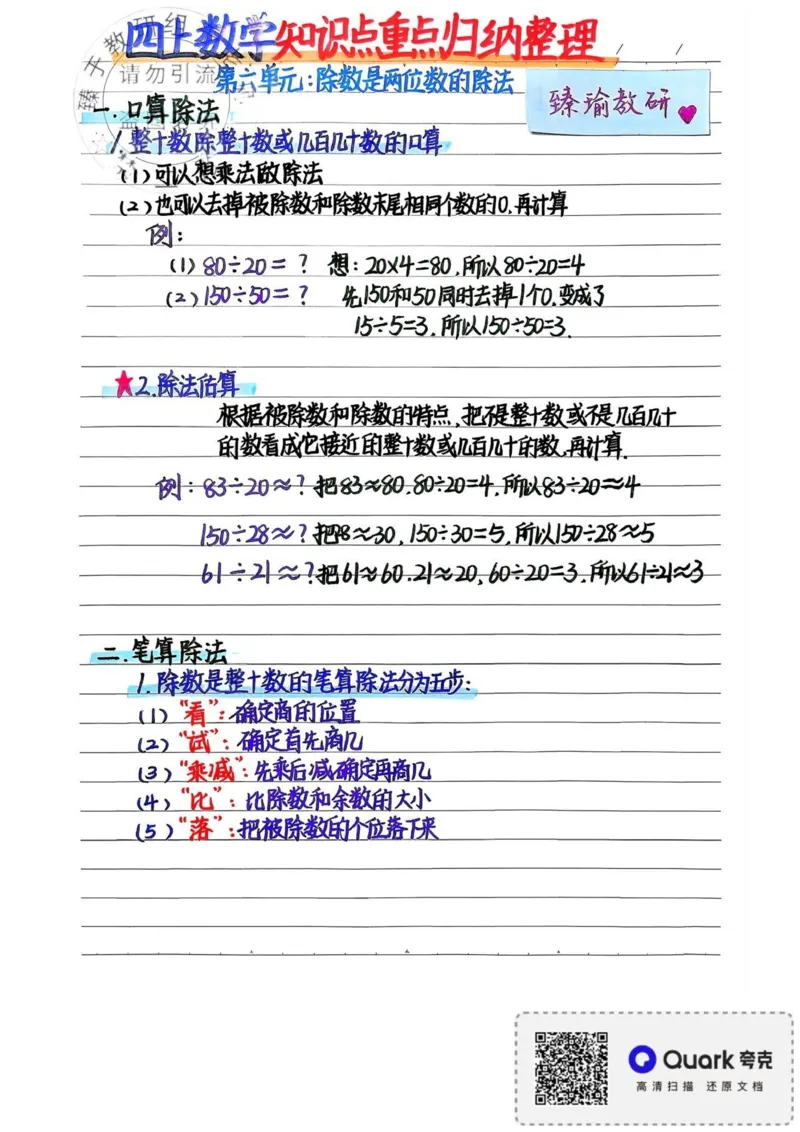 四上数学知识点重点归纳整理
第六单元:除数是两位数的除法
臻瑜教研
请勿引流
一.口算除法
1.整十数除整十数或几百几十数的口算
(1)可以想乘法做除法
(2)也可以去掉被除数和除数末尾相同个数的0.再计算
例:
(1)80÷20=? 想:20×4=80.所以80÷20=4
(2)150÷50=? 先150和50同时去掉1个0.变成了
15÷5=3.所以150÷50=3.
★2.除法估算
根据被除数和除数的特点、把不是整十数或不是几百几十
的数看成它接近的整十数或几百几十的数,再计算.
例:83÷20≈?把83≈80.80÷20=4.所以83÷20≈4
150÷28≈?把28≈30,150÷30=5,所以150÷28≈5
61÷21≈?把61≈60.21≈20,60÷20=3.所以61÷21≈3
二.笔算除法
1.除数是整十数的笔算除法分为五步:
(1)"看":确定商的位置
(2)"试":确定首先商几
(3)"乘减":先乘后减确定再商几
(4)"比":比除数和余数的大小
(5)"落":把被除数的个位落下来
Quark夸克
高清扫描 还原文档